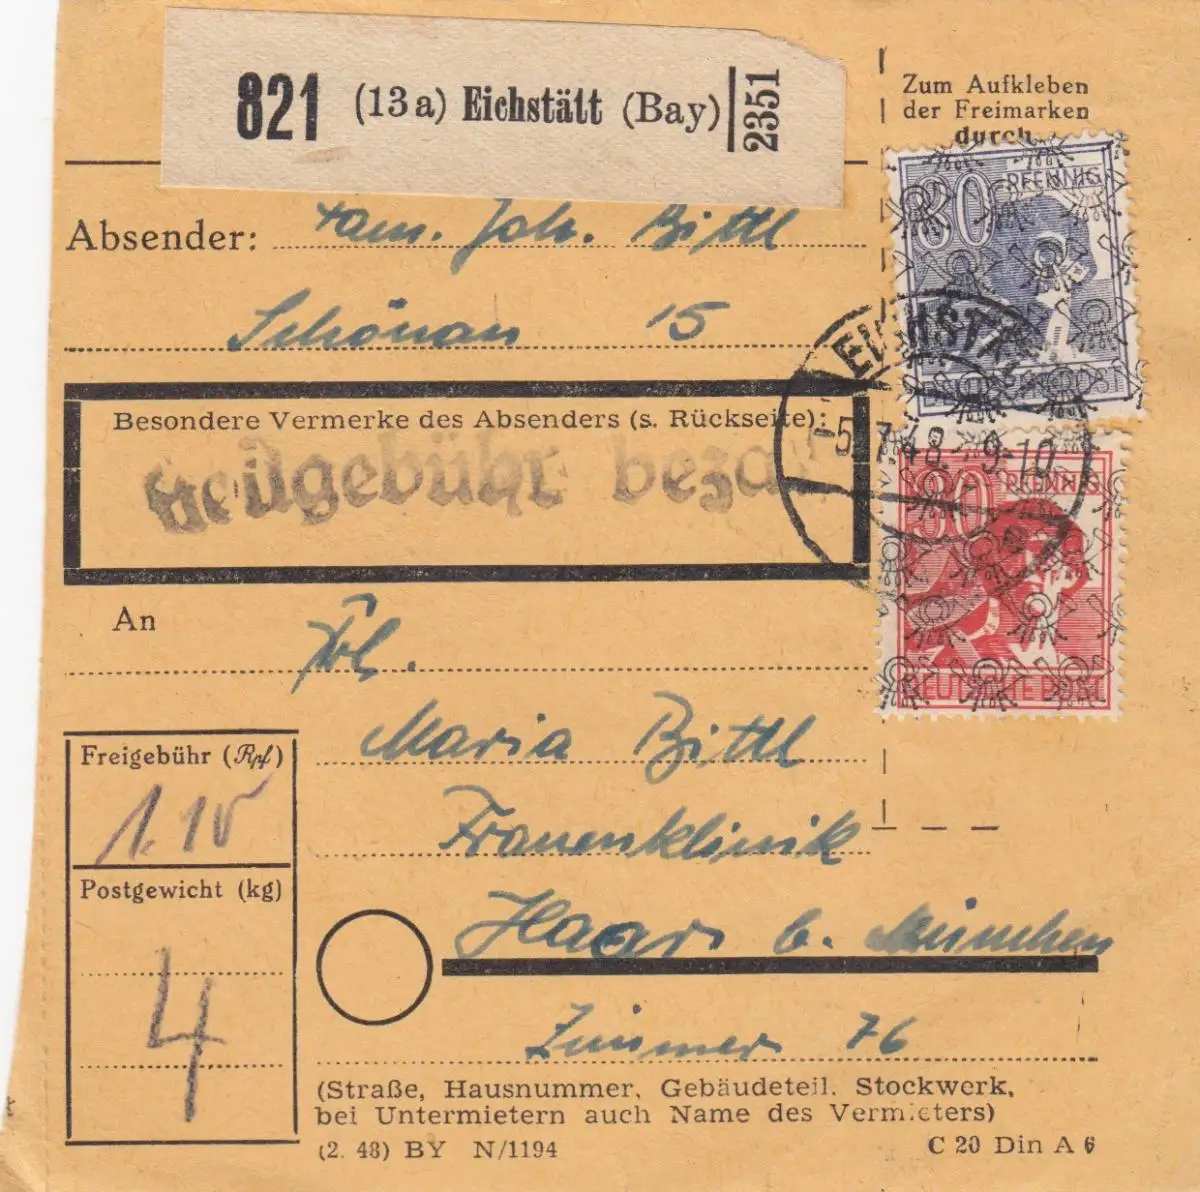 821 (13a) Eichstätt (Bay) 2351
Zum Aufkleben
der Freimarken
durch
Absender: Fam. Joh. Bittl
Schönau 15
Besondere Vermerke des Absenders (s. Rückseite):
gebühr
PFENNIG
DEUTSCHE POST
EICHSTÄ
-5.7.48. 9-10
30 PFENNIG
DEUTSCHE POST
An
Frl.
Maria Bittl
Frauenklinik
Haar b. München
Zimmer 76
Freigebühr (Rpf)
1.10
Postgewicht (kg)
4
(Straße, Hausnummer, Gebäudeteil, Stockwerk,
bei Untermietern auch Name des Vermieters)
(2. 48) BY N/1194
C 20 Din A 6